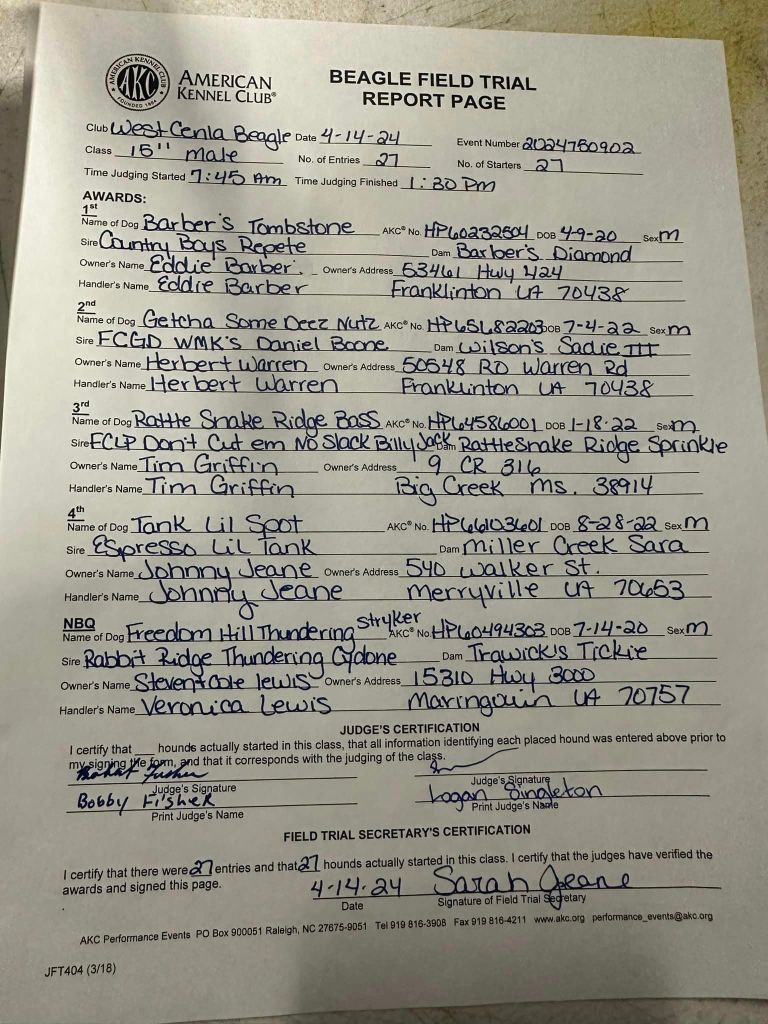 AMERICAN KENNEL CLUB
AKC
FOUNDED 1884
AMERICAN
KENNEL CLUB®
BEAGLE FIELD TRIAL
REPORT PAGE
Club West Cenla Beagle Date 4-14-24 Event Number 2024750902
Class 15" male No. of Entries 27 No. of Starters 27
Time Judging Started 7:45 Am Time Judging Finished 1:30 Pm
AWARDS:
1st
Name of Dog Barber's Tombstone AKC® No. HP60232504 DOB 4-9-20 Sex m
Sire Country Boys Repete Dam Barber's Diamond
Owner's Name Eddie Barber. Owner's Address 53461 Hwy 424
Handler's Name Eddie Barber Franklinton LA 70438
2nd
Name of Dog Getcha Some Deez Nutz AKC® No. HP65682203 DOB 7-4-22 Sex m
Sire FCGD WMK's Daniel Boone Dam Wilson's Sadie III
Owner's Name Herbert Warren Owner's Address 50548 RD Warren Rd
Handler's Name Herbert Warren Franklinton LA 70438
3rd
Name of Dog Rattle Snake Ridge Bass AKC® No. HP64586001 DOB 1-18-22 Sex m
Sire FCLP Don't Cut em No Slack Billy Jack Dam Rattlesnake Ridge Sprinkle
Owner's Name Tim Griffin Owner's Address 9 CR 316
Handler's Name Tim Griffin Big Creek Ms. 38914
4th
Name of Dog Tank Lil Spot AKC® No. HP66103601 DOB 8-28-22 Sex m
Sire Espresso Lil Tank Dam Miller Creek Sara
Owner's Name Johnny Jeane Owner's Address 540 Walker St.
Handler's Name Johnny Jeane Merryville LA 70653
NBQ
Name of Dog Freedom Hill Thundering Stryker AKC® No. HP60494303 DOB 7-14-20 Sex m
Sire Rabbit Ridge Thundering Cyclone Dam Trawick's Tickie
Owner's Name Steven + Cole Lewis Owner's Address 15310 Hwy 3000
Handler's Name Veronica Lewis Maringouin LA 70757
JUDGE'S CERTIFICATION
I certify that ___ hounds actually started in this class, that all information identifying each placed hound was entered above prior to
my signing the form, and that it corresponds with the judging of the class.
Judge's Signature Judge's Signature
Bobby Fisher Logan Singleton
Print Judge's Name Print Judge's Name
FIELD TRIAL SECRETARY'S CERTIFICATION
I certify that there were 27 entries and that 27 hounds actually started in this class. I certify that the judges have verified the
awards and signed this page.
4-14-24 Sarah Jeane
Date Signature of Field Trial Secretary
AKC Performance Events PO Box 900051 Raleigh, NC 27675-9051 Tel 919 816-3908 Fax 919 816-4211 www.akc.org performance_events@akc.org
JFT404 (3/18)